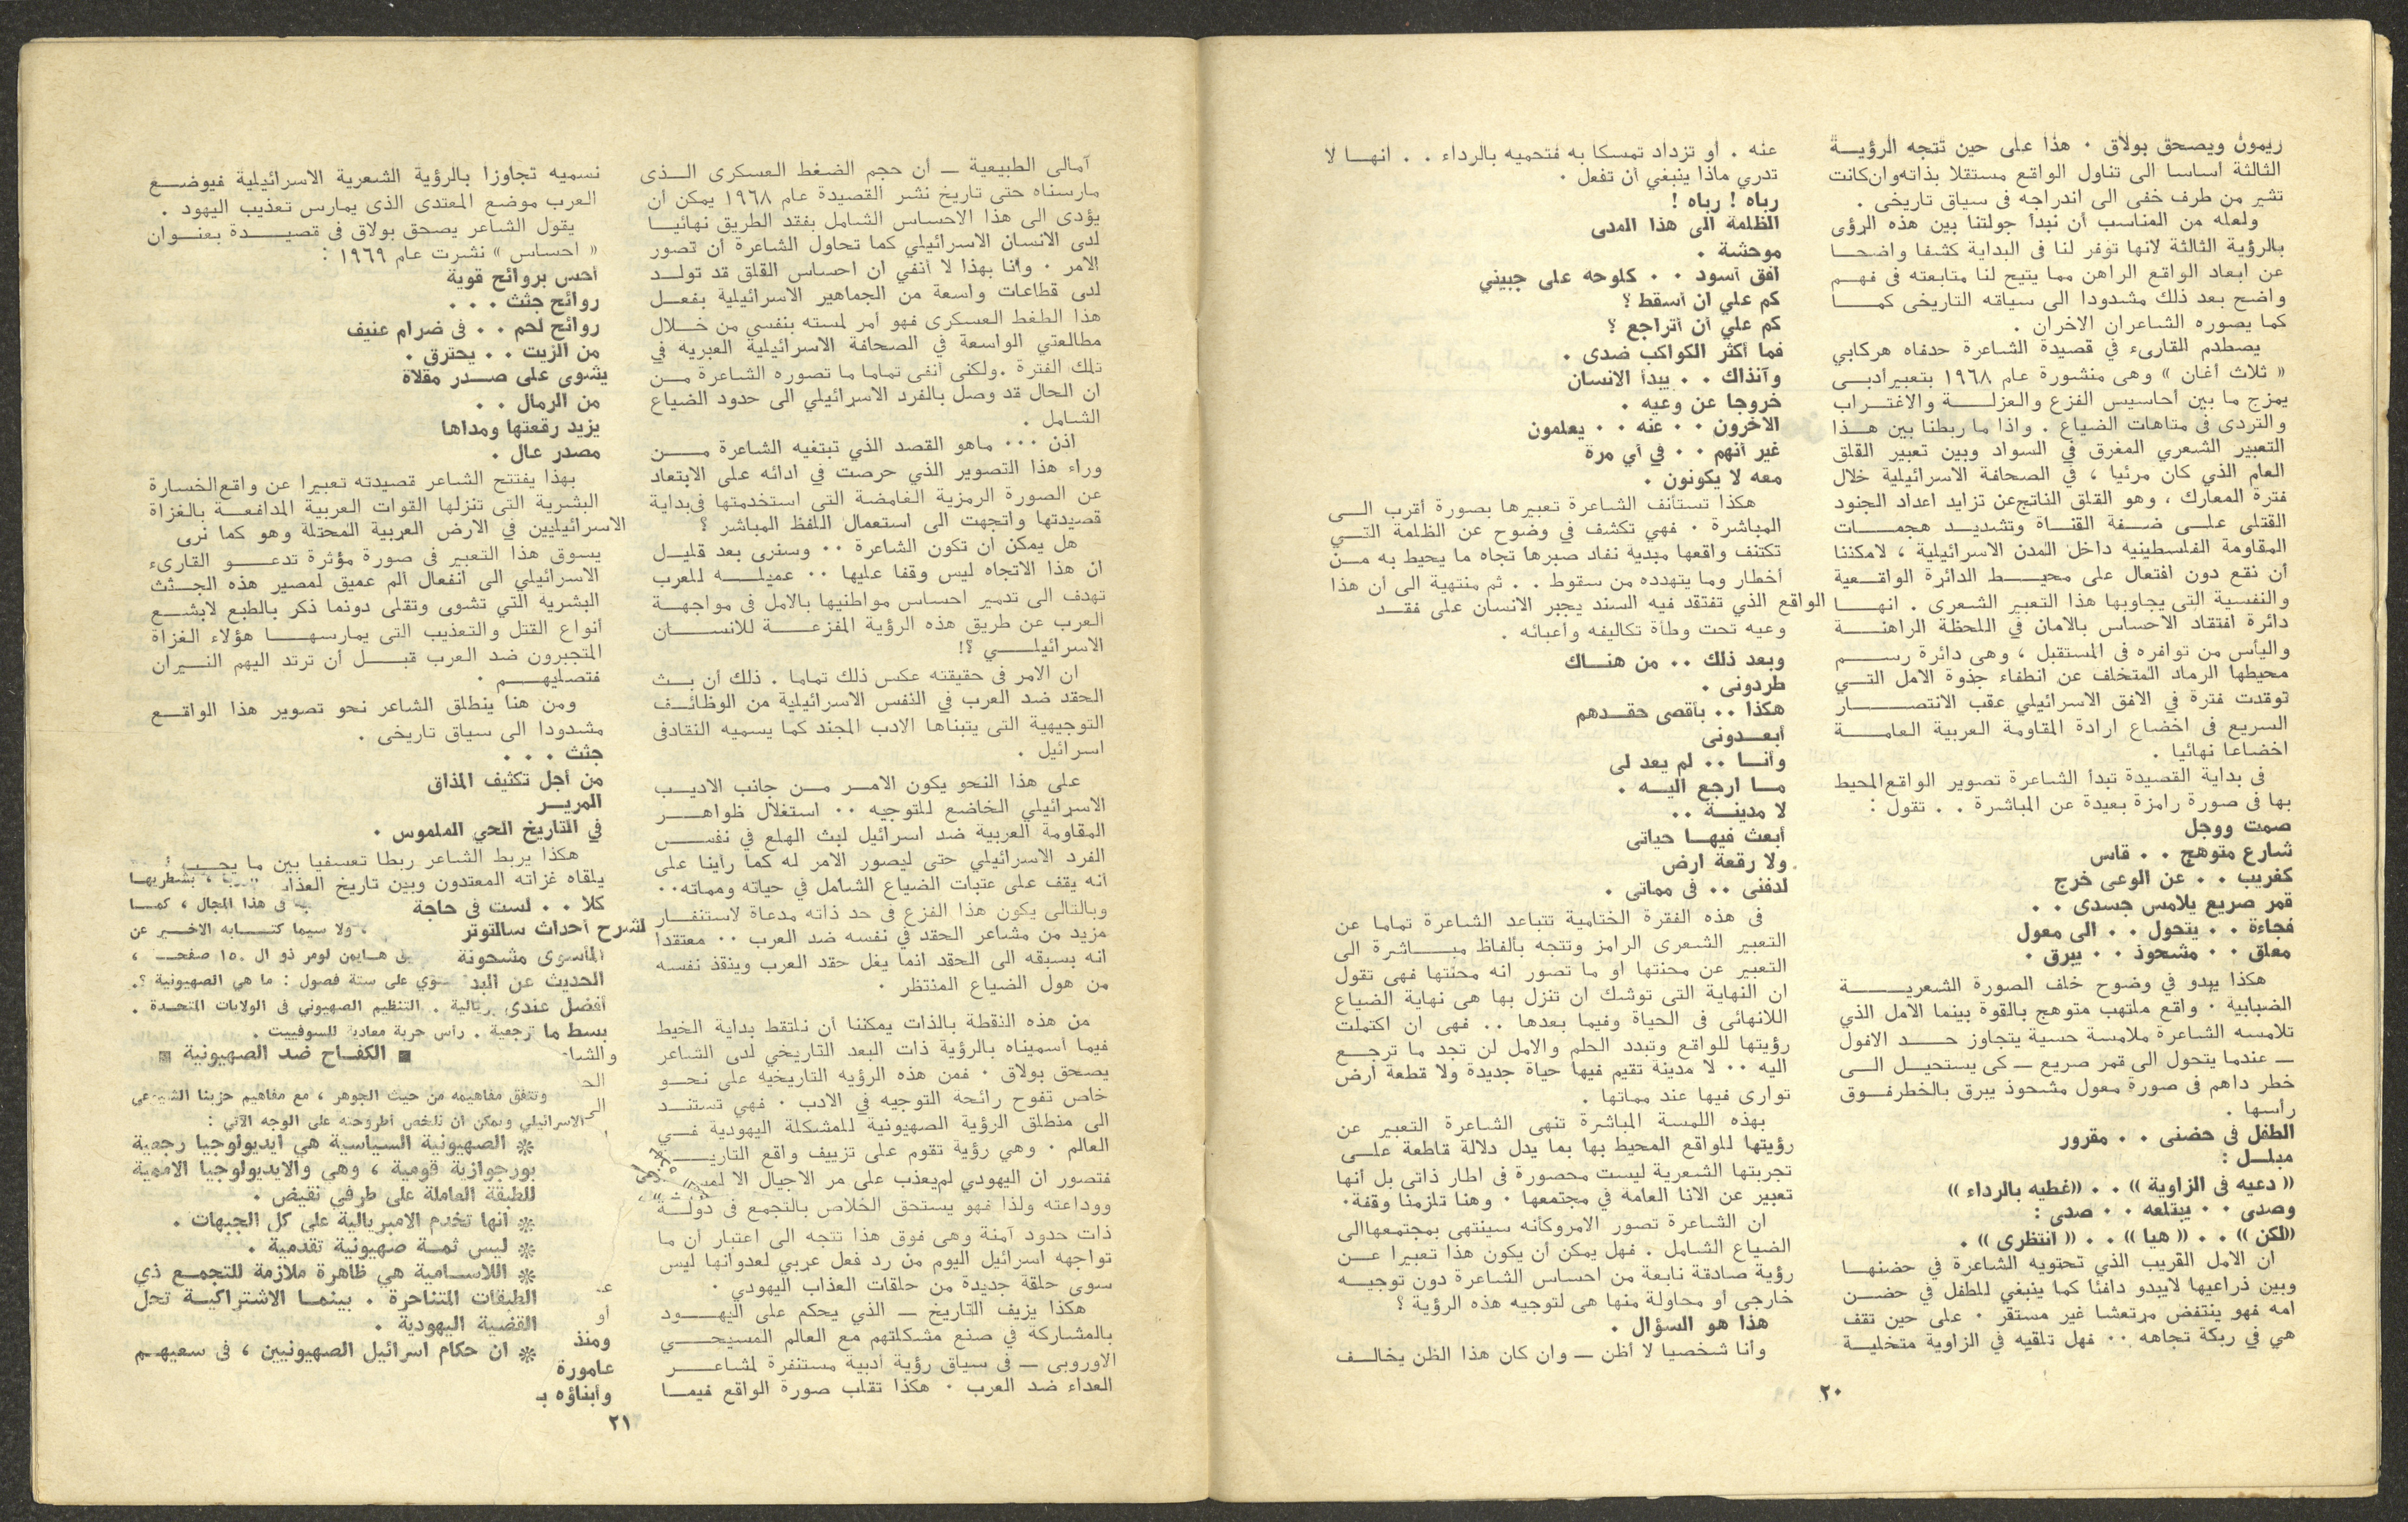 ريمون ويصحق بولاق . هذا على حين تتجه الرؤيــة
الثالثة أساسا الى تناول الواقع مستقلا بذاته وان كانت
تشير من طرف خفى الى اندراجه فى سياق تاريخى .
ولعله من المناسب أن نبدأ جولتنا بين هذه الرؤى
بالرؤية الثالثة لانها توفر لنا فى البداية كشفا واضحــا
عن ابعاد الواقع الراهن مما يتيح لنا متابعته فى فهــم
واضح بعد ذلك مشدودا الى سياقه التاريخى كمــــا
كما يصوره الشاعران الاخران .
يصطدم القارىء في قصيدة الشاعرة حدفاه هركابي
« ثلاث أغان » وهى منشورة عام ١٩٦٨ بتعبير ادبــى
يمزج ما بين أحاسيس الفزع والعزلــــة والاغتــراب
والتردى فى متاهات الضياع . واذا ما ربطنا بين هــذا
التعبير الشعري المغرق في السواد وبين تعبير القلق
العام الذي كان مرئيا ، في الصحافة الاسرائيلية خلال
فترة المعارك ، وهو القلق الناتج عن تزايد اعداد الجنود
القتلى علــى ضــفة القنــاة وتشديــد هجمــــات
المقاومة الفلسطينيه داخل المدن الاسرائيلية ، لامكننا
أن نقع دون افتعال على محيــــط الدائرة الواقــعية
والنفسية التى يجاوبها هذا التعبير الشعرى . انهـــا
دائرة افتقاد الاحساس بالامان في اللحظة الراهنـــــة
واليأس من توافره فى المستقبل ، وهى دائرة رســــم
محيطها الرماد المتخلف عن انطفاء جذوة الامل التــي
توقدت فترة في الافق الاسرائيلي عقب الانتصـــــــار
السريع فى اخضاع ارادة المقاومة العربية العامــــة
اخضاعا نهائيا .
فى بداية القصيدة تبدأ الشاعرة تصوير الواقع المحيط
بها فى صورة رامزة بعيدة عن المباشرة . . تقول :
صمت ووجل
شارع متوهج . . قاس
كغريب . . عن الوعى خرج
قمر صريع يلامس جسدى . .
فجاءة . . يتحول . . الى معول
معلق . . مشحوذ . . يبرق .
هكذا يبدو في وضوح خلف الصورة الشعريــــــة
الضبابية . واقع ملتهب متوهج بالقوة بينما الامل الذي
تلامسه الشاعرة ملامسة حسية يتجاوز حــــد الافول
ــ عندما يتحول الى قمر صريع ــ كى يستحيــل الــى
خطر داهم فى صورة معول مشحوذ يبرق بالخطر فــوق
رأسها .
الطفل فى حضنى . . مقرور
مبلــل :
« دعيه فى الزاوية » . . «غطيه بالرداء »
وصدى . . يبتلعه . . صدى :
«لكن » . . « هيا » . . « انتظرى » .
ان الامل القريب الذي تحتويه الشاعرة في حضنهــا
وبين ذراعيها لايبدو دافئا كما ينبغي للطفل في حضــن
امه فهو ينتفض مرتعشا غير مستقر . على حين تقف
هي في ربكة تجاهه .. فهل تلقيه في الزاوية متخليــة
عنه . أو تزداد تمسكا به فتحميه بالرداء . . انهــا لا
تدري ماذا ينبغي أن تفعل .
رباه ! رباه !
الظلمة الى هذا المدى
موحشة .
أفق أسود . . كلوحه على جبيني
كم علي ان أسقط ؟
كم علي أن أتراجع ؟
فما أكثر الكواكب ضدى .
وآنذاك . . يبدأ الانسان
خروجا عن وعيه .
الاخرون . . عنه . . يعلمون
غير أنهم . . في أي مرة
معه لا يكونون .
هكذا تستأنف الشاعرة تعبيرها بصورة أقرب الــى
المباشرة . فهي تكشف في وضوح عن الظلمة التــي
تكتنف واقعها مبدية نفاد صبرها تجاه ما يحيط به مــن
أخطار وما يتهدده من سقوط . . ثم منتهية الى أن هذا
الواقع الذي تفتقد فيه السند يجبر الانسان على فقــد
وعيه تحت وطأة تكاليفه وأعبائه .
وبعد ذلك .. من هنــاك
طردونى .
هكذا .. بأقصى حقــدهم
أبعــدونى
وأنــا .. لم يعد لى
مــا ارجع اليــه .
لا مدينــة ..
أبعث فيهــا حياتى
ولا رقعة ارض
لدفنى .. فى مماتى .
فى هذه الفقرة الختامية تتباعد الشاعرة تماما عن
التعبير الشعرى الرامز وتتجه بألفاظ مبــــاشرة الى
التعبير عن محنتها أو ما تصور انه محنتها فهى تقول
ان النهاية التى توشك ان تنزل بها هى نهاية الضياع
اللانهائى فى الحياة وفيما بعدها .. فهى ان اكتملت
رؤيتها للواقع وتبدد الحلم والامل لن تجد ما ترجــع
اليه .. لا مدينة تقيم فيها حياة جديدة ولا قطعة أرض
توارى فيها عند مماتها .
بهذه اللمسة المباشرة تنهى الشاعرة التعبير عن
رؤيتها للواقع المحيط بها بما يدل دلالة قاطعة علــى
تجربتها الشعرية ليست محصورة فى اطار ذاتى بل أنها
تعبير عن الانا العامة في مجتمعها . وهنا تلزمنا وقفة.
ان الشاعرة تصور الامر وكأنه سينتهى بمجتمعها الى
الضياع الشامل . فهل يمكن أن يكون هذا تعبيرا عــن
رؤية صادقة نابعة من احساس الشاعرة دون توجيــه
خارجى أو محاولة منها هى لتوجيه هذه الرؤية ؟
هذا هو السؤال .
وأنا شخصيا لا أظن ــ وان كان هذا الظن يخالــف
٢٠
آمالى الطبيعية ــ أن حجم الضغط العسكرى الــذى
مارسناه حتى تاريخ نشر القصيدة عام ١٩٦٨ يمكن أن
يؤدى الى هذا الاحساس الشامل بفقد الطريق نهائيــا
لدى الانسان الاسرائيلي كما تحاول الشاعرة أن تصور
الامر . وأنا بهذا لا أنفي ان احساس القلق قد تولــد
لدى قطاعات واسعة من الجماهير الاسرائيلية بفعــل
هذا الطغط العسكرى فهو أمر لمسته بنفسي من خــلال
مطالعتي الواسعة في الصحافة الاسرائيلية العبريه في
تلك الفترة .ولكنى أنفى تماما ما تصوره الشاعرة مــن
ان الحال قد وصل بالفرد الاسرائيلي الى حدود الضياع
الشامل .
اذن ... ماهو القصد الذي تبتغيه الشاعرة مـــن
وراء هذا التصوير الذي حرصت في ادائه على الابتعاد
عن الصورة الرمزية الغامضة التى استخدمتها فى بداية
قصيدتها واتجهت الى استعمال اللفظ المباشر ؟
هل يمكن أن تكون الشاعرة .. وسنرى بعد قليــل
ان هذا الاتجاه ليس وقفا عليها .. عميلــــه للعرب
تهدف الى تدمير احساس مواطنيها بالامل فى مواجهــة
العرب عن طريق هذه الرؤية المفزعــــة للانســـان
الاسرائيلــــي ؟!
ان الامر فى حقيقته عكس ذلك تماما . ذلك أن بــث
الحقد ضد العرب في النفس الاسرائيلية من الوظائــف
التوجيهية التى يتبناها الادب المجند كما يسميه النقاد فى
اسرائيل .
على هذا النحو يكون الامــر مــن جانب الاديــب
الاسرائيلي الخاضع للتوجيه .. استغلال ظواهــــر
المقاومة العربية ضد اسرائيل لبث الهلع في نفســـس
الفرد الاسرائيلي حتى ليصور الامر له كما رأينا على
أنه يقف على عتبات الضياع الشامل في حياته ومماته..
وبالتالى يكون هذا الفزع فى حد ذاته مدعاة لاستنفــار
مزيد من مشاعر الحقد في نفسه ضد العرب .. معتقدا
انه بسبقه الى الحقد انما يغل حقد العرب وينقذ نفسه
من هول الضياع المنتظر .
من هذه النقطة بالذات يمكننا أن نلتقط بداية الخيط
فيما أسميناه بالرؤية ذات البعد التاريخي لدى الشاعر
يصحق بولاق . فمن هذه الرؤيه التاريخيه على نحــو
خاص تفوح رائحة التوجيه في الادب . فهي تستنــد
الى منطلق الرؤية الصهيونية للمشكلة اليهودية فــي
العالم . وهي رؤية تقوم على تزييف واقع التاريـــخ
فتصور ان اليهودي لم يعذب على مر الاجيال الا لميـ
ووداعته ولذا فهو يستحق الخلاص بالتجمع فى دولــة
ذات حدود آمنة وهى فوق هذا تتجه الى اعتبار أن ما
تواجهه اسرائيل اليوم من رد فعل عربي لعدوانها ليس
سوى حلقة جديدة من حلقات العذاب اليهودي .
هكذا يزيف التاريخ ــ الذي يحكم على اليهــــود
بالمشاركة في صنع مشكلتهم مع العالم المسيحــــي
الاوروبى ــ فى سياق رؤية أدبية مستنفرة لمشاعــــر
العداء ضد العرب . هكذا تقلب صورة الواقع فيمــا
نسميه تجاوزا بالرؤية الشعرية الاسرائيلية فيوضــع
العرب موضع المعتدى الذى يمارس تعذيب اليهود .
يقول الشاعر يصحق بولاق فى قصيـــــدة بعنــوان
« احساس » نشرت عام ١٩٦٩ :
أحس بروائح قوية
روائح جثث . . .
روائح لحم . . فى ضرام عنيف
من الزيت . . يحترق .
يشوى على صــدر مقلاة
من الرمال . .
يزيد رقعتها ومداها
مصدر عال .
بهذا يفتتح الشاعر قصيدته تعبيرا عن واقع الخسارة
البشرية التى تنزلها القوات العربية المدافعــة بالغزاة
الاسرائيليين في الارض العربية المحتلة وهو كما نرى
يسوق هذا التعبير فى صورة مؤثرة تدعــــو القارىء
الاسرائيلي الى انفعال الم عميق لمصير هذه الجــثث
البشريه التي تشوى وتقلى دونما ذكر بالطبع لابشــع
أنواع القتل والتعذيب التى يمارسهـــا هؤلاء الغزاة
المتجبرون ضد العرب قبــــل أن ترتد اليهم النــيران
فتصليهـــم .
ومن هنا ينطلق الشاعر نحو تصوير هذا الواقــع
مشدودا الى سياق تاريخى .
جثث . . .
من أجل تكثيف المذاق
المريــر
في التاريخ الحي الملموس .
هكذا يربط الشاعر ربطا تعسفيا بين ما يجــب
يلقاه غزاته المعتدون وبين تاريخ العذاب ، بشطريهــا
كلا . . لست فى حاجة به فى هذا المجال ، كمــا
لشرح أحداث سالتوتر ، ولا سيما كتــــابه الاخــير عن
المأسوى مشحونة هــايمن لومر ذو ال ١٥٠ صفحــ ،
الحديث عن البد ـتوي على ستة فصول : ما هي الصهيونية ؟.
أفضل عندى ـريالية . التنظيم الصهيوني فى الولايات المتحــدة .
بسط ما ـرجعية . رأس حربة معادية للسوفييت .
والشاـ ▪ الكفــاح ضد الصهيونية ▪
الحـ
وتتفق مفاهيمه من حيث الجوهر ، مع مفاهيم حزبنا الشيوعى
الى الاسرائيلي ويمكن ان نلخص أطروحته على الوجه الآتي :
✻ الصهيونية السياسية هي ايديولوجيا رجعية
بورجوازية قومية ، وهي والايديولوجيا الاممية
للطبقة العاملة على طرفي نقيض .
✻ انها تخدم الامبريالية على كل الجبهات .
✻ ليس ثمــة صهيونية تقدمية .
✻ اللاســامية هي ظاهرة ملازمة للتجمــع ذي
عـ الطبقات المتناحرة . بينمــا الاشتراكيــة تحل
أو القضية اليهودية .
ومنذ ✻ ان حكام اسرائيل الصهيونيين ، فى سعيهــم
عامورة
وأبناؤه بـ
٢١